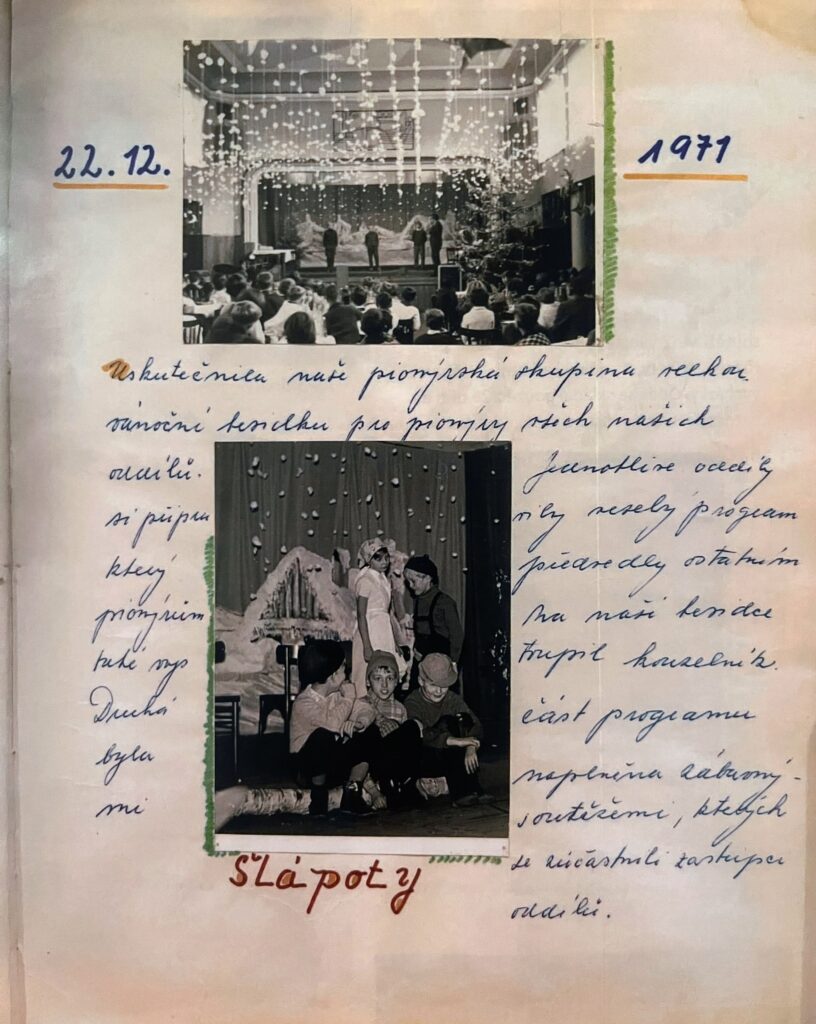 22.12. 1971
Uskutečnila naše pionýrská skupina velkou
vánoční besídku pro pionýry všech našich
oddílů. Jednotlivé oddíly
si připra vily veselý program
který předvedly ostatním
pionýrům Na naší besídce
také vys toupil kouzelník.
Druhá část programu
byla naplněna zábavný-
mi soutěžemi, kterých
se zúčastnili zástupci
oddílů.
Šlápoty